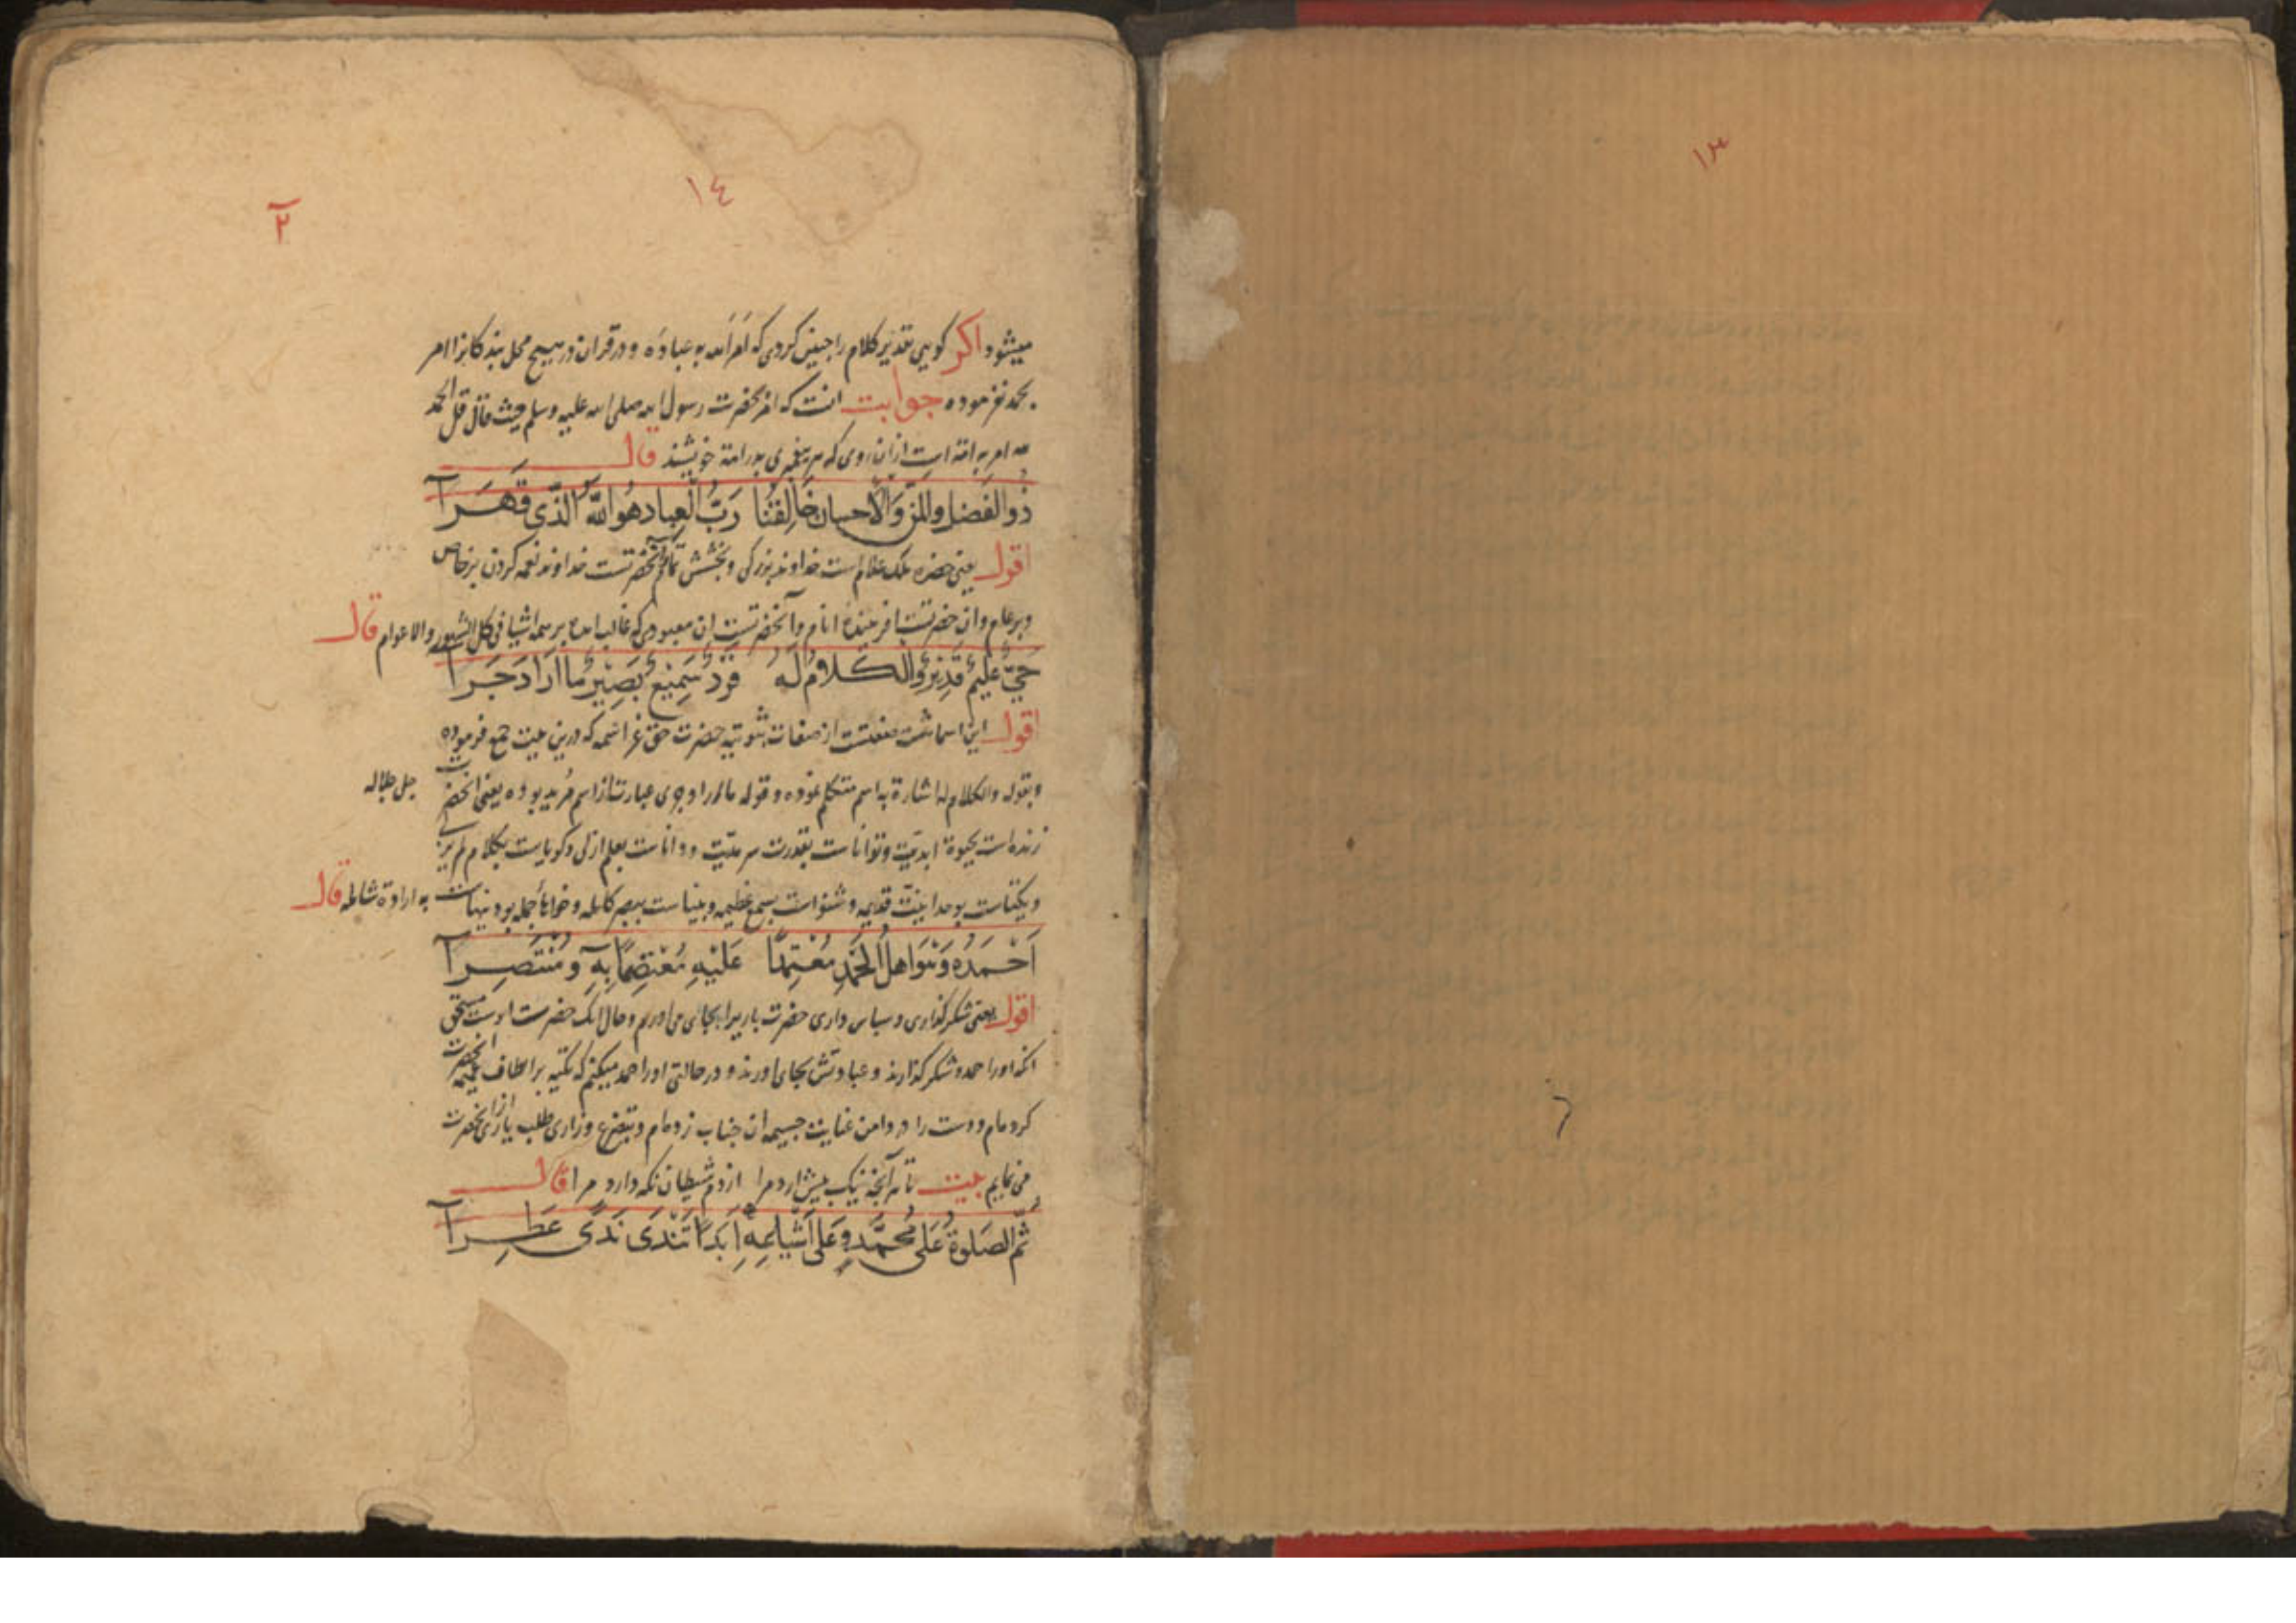 ۱۳
۱٤
۲
میشود اکر کویی تقدیر کلام را چنین کردی که امر الله به عباده و در قران در هیچ محل بندکانرا امر
بحمد نفرموده جوابت انست که امر بحضرت رسول الله صلی الله علیه وسلم حیث قال قل الحمد
لله امر به امته است ازان روی که هر پیغمبری پدر امة خویشند قال
ذُو الفَضلِ والمَنِّ وَالاحسانِ خَالِقُنَا رَبُّ العِبادِ هُوَ اللّٰهُ الَّذی قَهَرَا
اقول یعنی حضرة ملک علام است خداوند بزرکی و بخشش تمام و آنحضرتست خداوند نعمه کردن بر خاص
و بر عام و ان حضرتست افریننده انام و آنحضرتست ان معبودی که غالب امده بر همه اشیا فی کل الشهور والاعوام قال
حَيٌّ عَلِيمٌ قَدِيرٌ وَالكَلامُ لَهُ فَرْدٌ سَمِيعٌ بَصِيرٌ مَا أَرَادَ جَرَا
اقول این اسما شت صفتست از صفات ثبوتیه حضرت حق عز اسمه که درین بیت جمع فرموده
و بقوله والکلام له اشارة به اسم متکلم نموده و قوله ما اراد جری عبارتست از اسم مُرید بوده یعنی انحضرت جل جلاله
زنده است بحیوة ابدیت و تواناست بقدرت سرمدیت و داناست بعلم ازلی و کویاست بکلام لم یزلی
و یکتاست بوحدانیّت قدیمه و شنواست بسمع عظیمه و بیناست ببصر کامله و خواهاء جمله بود ینهاست به ارادة شامله قال
أَحْمَدُهُ وَهُوَ اهلُ الحَمْدِ مُعْتَمِدًا عَلَيْهِ مُعْتَصِمًا بِهِ وَمُنْتَصِرَا
اقول یعنی شکر کذاری و سپاس داری حضرت باریرا بجای می اورم و حال انک حضرت اوست مستحق
انکه اورا حمد و شکر کذارند و عبادتش بجای اورند و در حالتی اورا حمد میکنم که تکیه بر الطاف عمیمه انحضرت
کرده ام و دست را در دامن عنایت جسیمه ان جناب زده ام و بتضرع و زاری طلب یاری از انحضرت
می نمایم بیت تا هر آنچه نیک پیش ارد مرا از دم شیطان نکه دارد مرا قال
ثُمَّ الصَلوةُ عَلَى مُحَمَّدٍ وَعَلَى أَشْيَاعِهِ أَبَدًا تَنْدَى نَدًى عَطِرَا